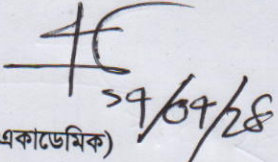 ১৭/০৭/২৪
একাডেমিক)